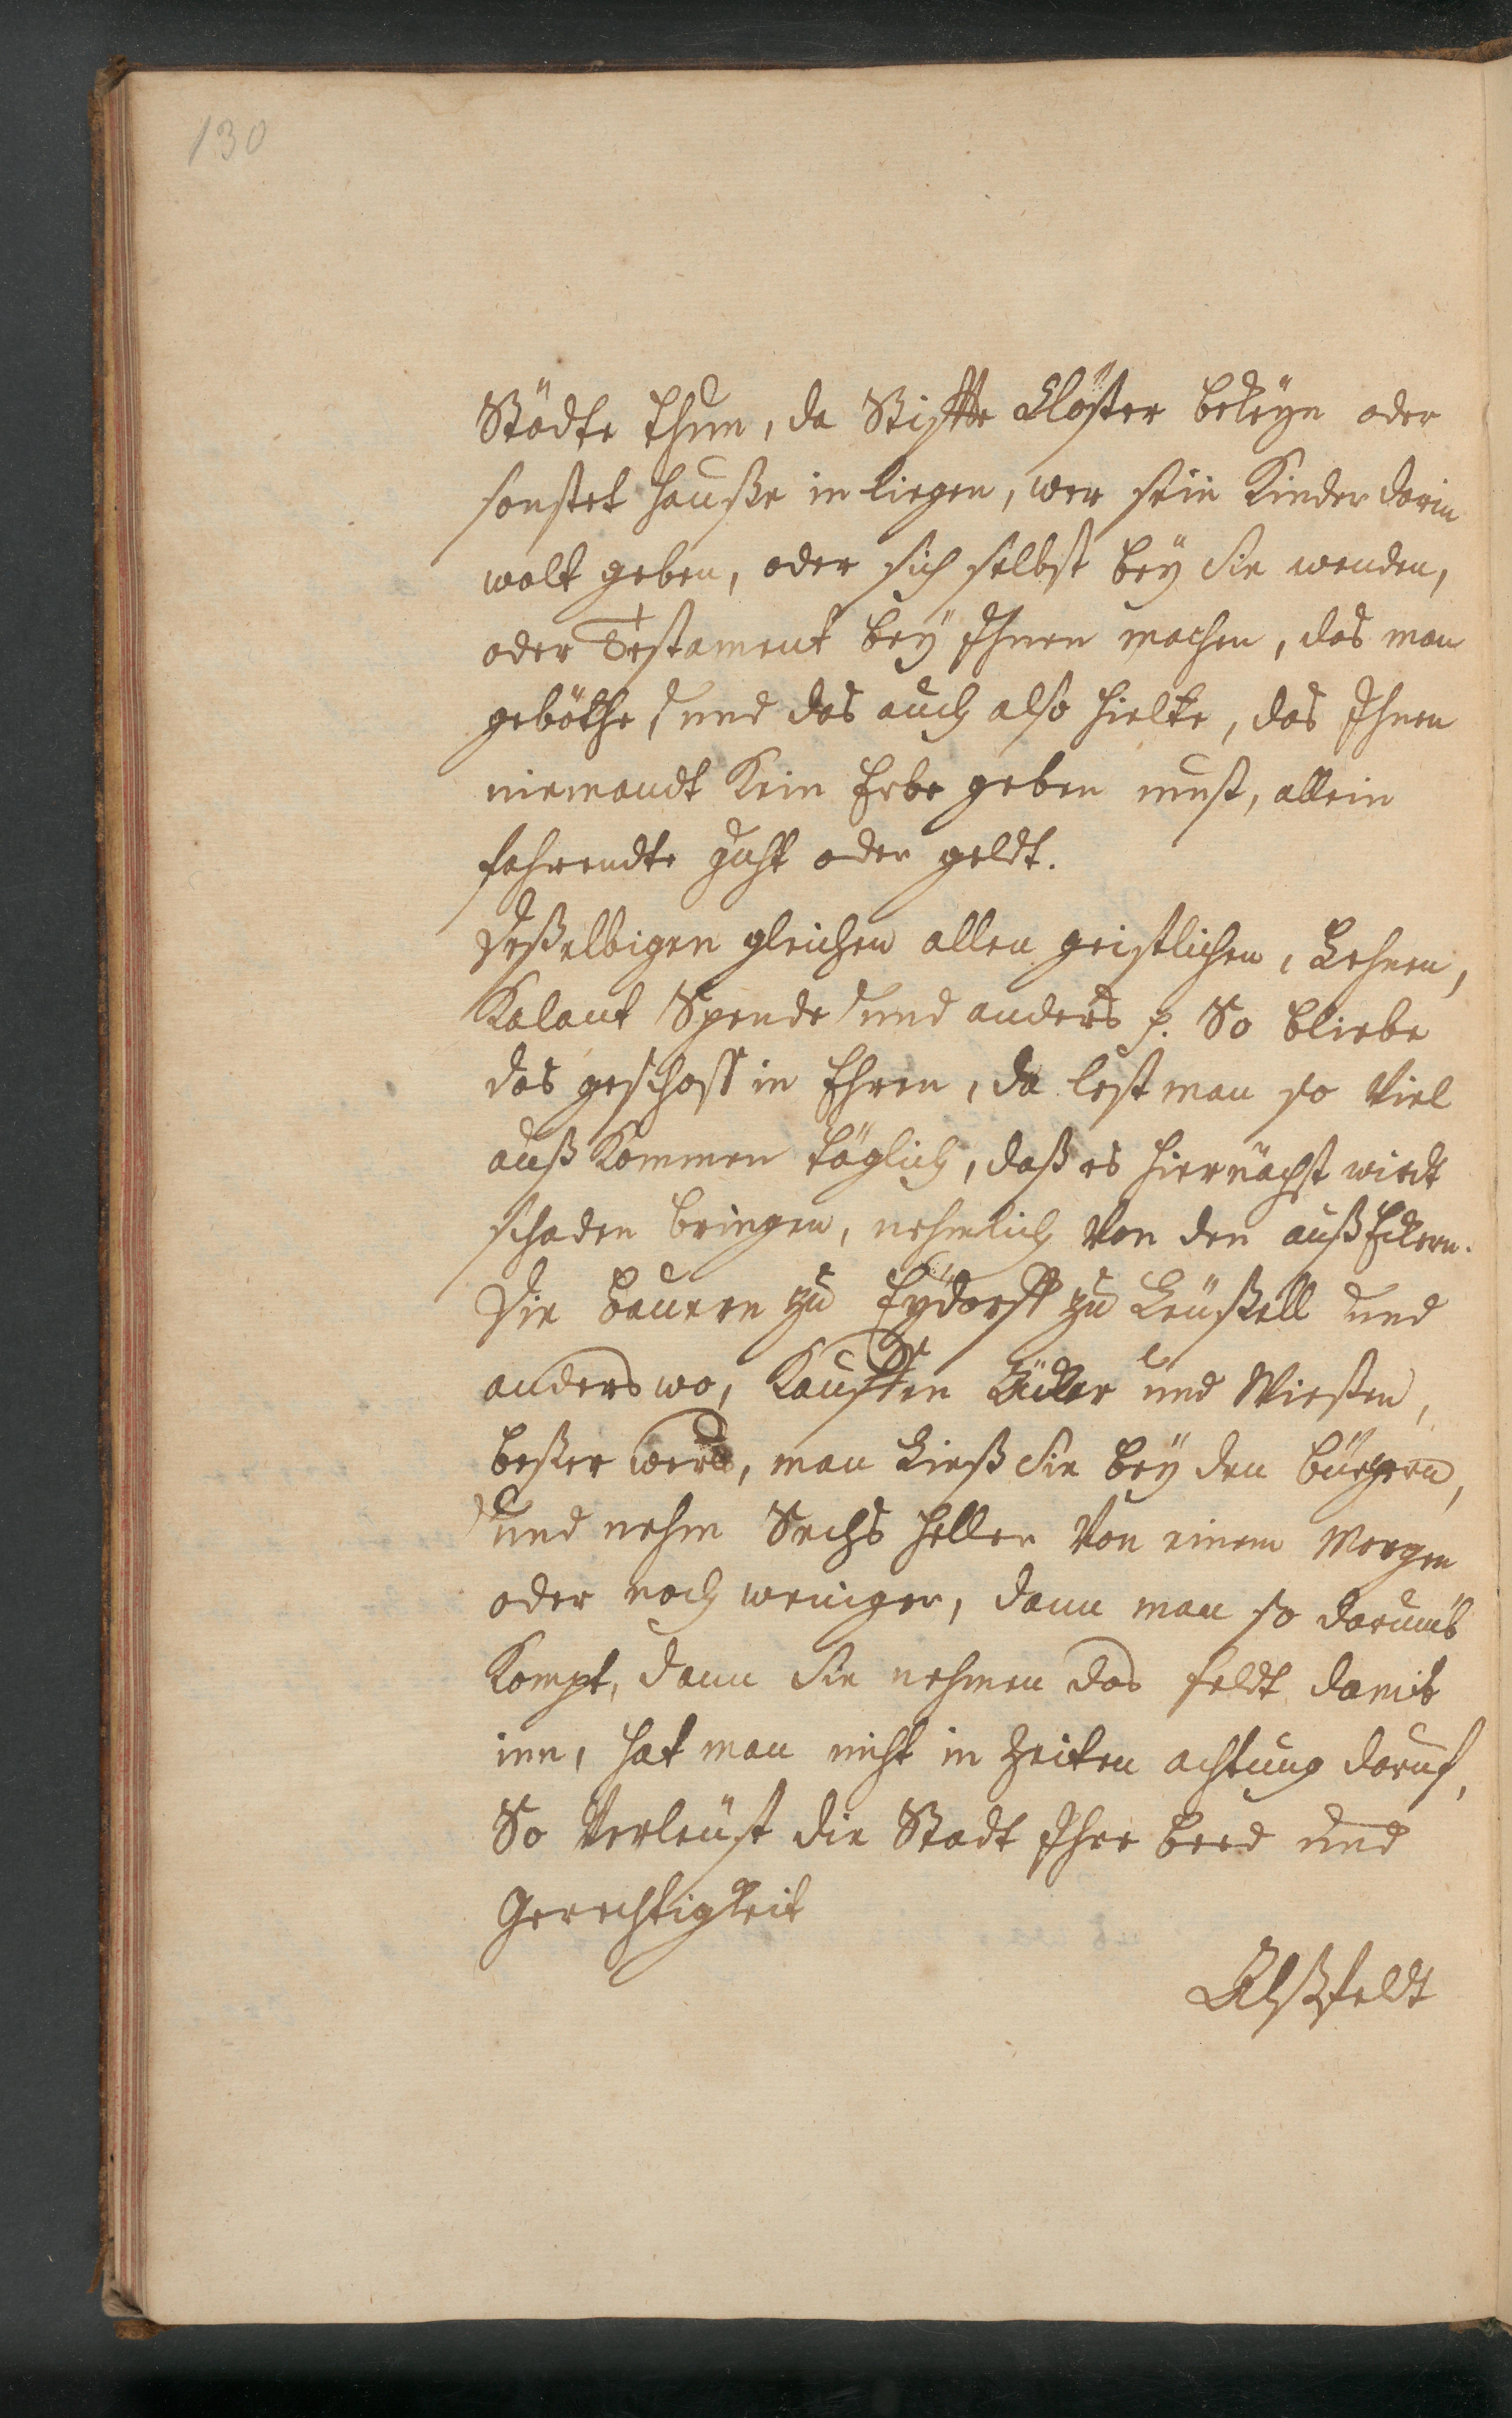 130
Städte thun, da Stiffte Clöster bekeÿn oder
sonstet hauße in liegen, wer sein Kinder darin
wolt geben, oder sich selbst beÿ Sie wenden,
oder Testament beÿ Ihnen machen, das man
geböthe, und das auch also hielte, das Ihnen
niemandt Kein Erbe geben must, allein
fahrendte guht oder geldt.
Deßelbigen gleichen allen geistlichen, Lehnen,
Kalant Spende und anders p. So bliebe
das geschoss in Ehren, da lest man so viel
auß Kommen täglich, daß es hiernächst wirdt
schaden bringen, nehmlich von den auß Eckern.
Die Bauren zu Eÿdorff zu Leüßell und
anderswo, Kaufften Äcker und Wießen,
beßer wers, man ließ Sie beÿ den bürgern,
und nehm Sechs heller von einem Morgen
oder noch weniger, dann man so darumb
Kompt, dann Sie nehmen das feldt damit
inn, hat man nicht in Zeiten achtung daruf,
So verleüst die Stadt Ihre beed und
Gerechtigkeit
Alßfeldt